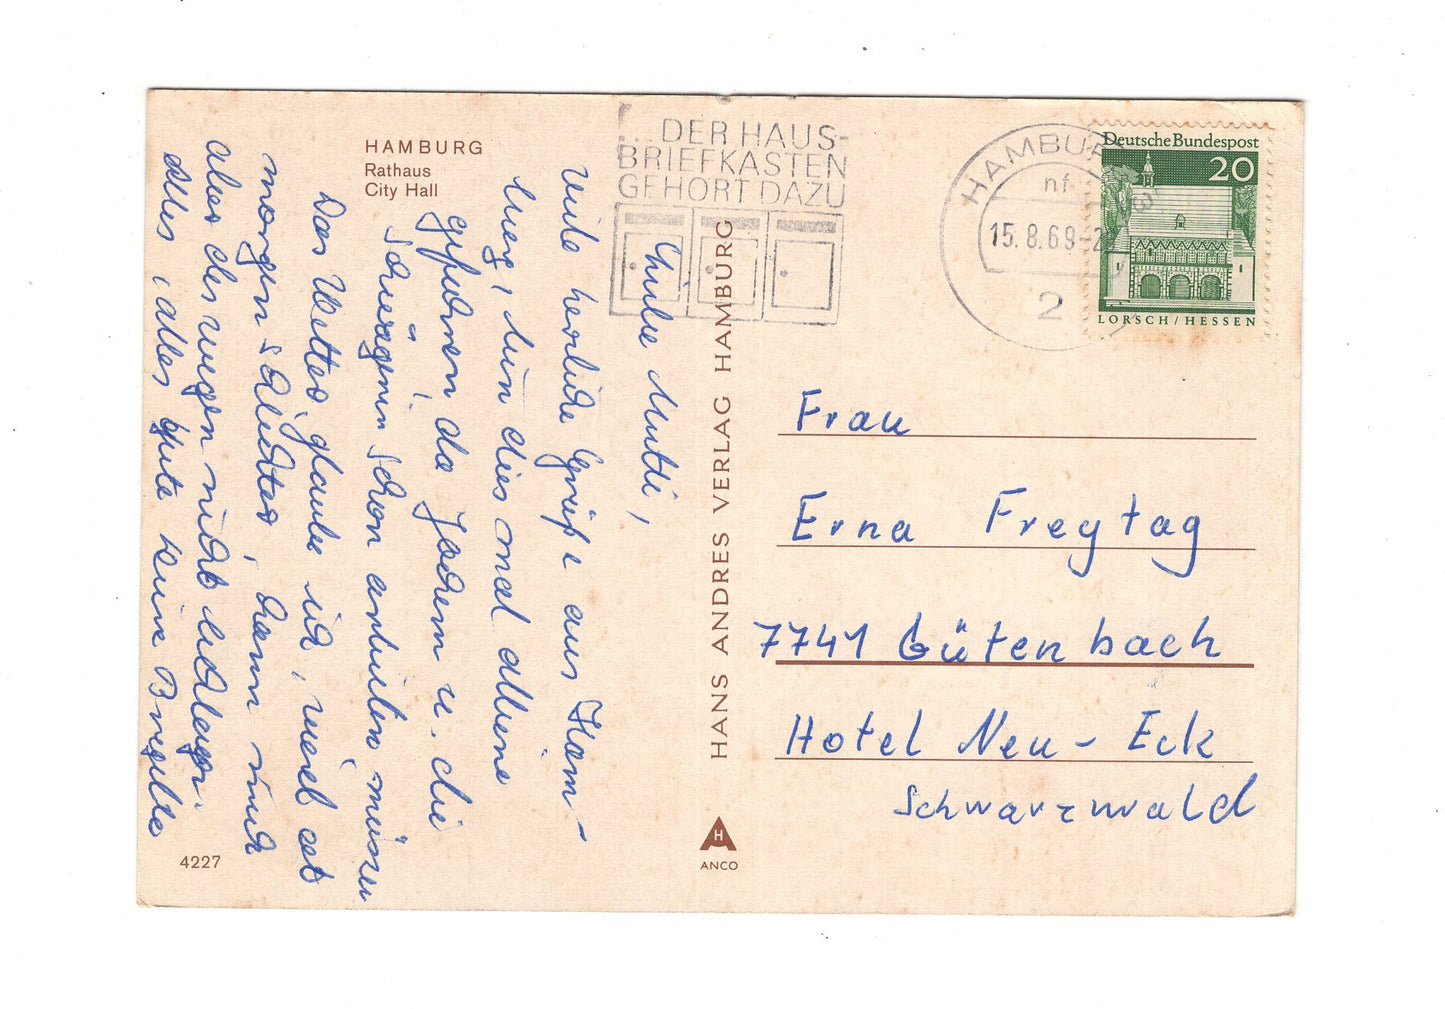 HAMBURG
Rathaus
City Hall
... DER HAUS-
BRIEFKASTEN
GEHÖRT DAZU
HAMBURG
nf
15.8.69-2
2
Deutsche Bundespost
20
LORSCH/HESSEN
Mutti,
viele herzliche Grüße aus Ham-
burg, bin dies mal alleine
gefahren da Jochem u. die
schon arbeiten müssen
Das Wetter glaube ich, wird ab
morgen schlechter, kann mich
aber deswegen nicht beklagen.
Alles, alles gute Deine Brigitte
HANS ANDRES VERLAG HAMBURG
H
ANCO
4227
Frau
Erna Freytag
7741 Gütenbach
Hotel Neu-Eck
Schwarzwald